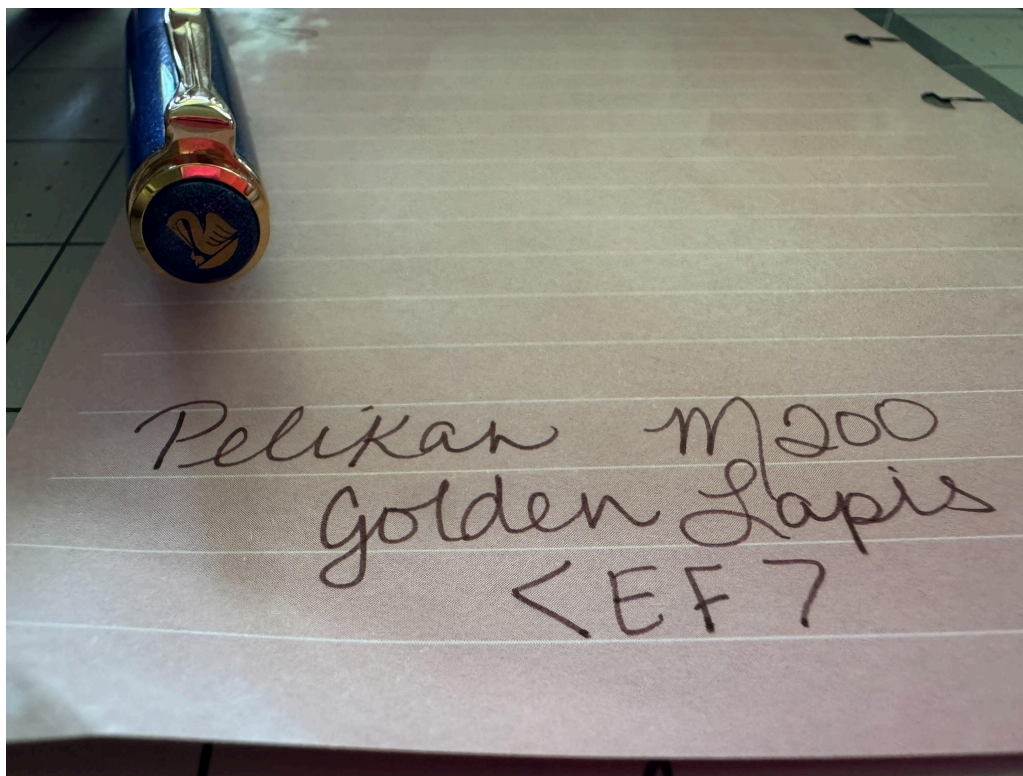 Pelikan M200
Golden Lapis
<EF>